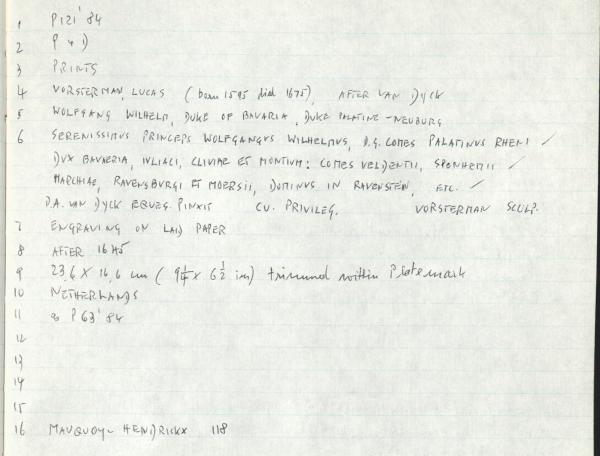 1 P121'84
2 P & D
3 PRINTS
4 VORSTERMAN, LUCAS (born 1595 died 1675), AFTER VAN DYCK
5 WOLFGANG WILHELM, DUKE OF BAVARIA, DUKE PALATINE-NEUBURG
6 SERENISSIMUS PRINCEPS WOLFGANGVS WILHELMVS, D.G. COMES PALATINVS RHENI /
DVX BAVARIA, IVLIACI, CLIVIAE ET MONTIVM: COMES VELDENTII, SPONHEMII /
MARCHIAE, RAVENSBURGI ET MOERSII, DOMINVS IN RAVENSTEIN, ETC. /
D.A. VAN DYCK EQUES. PINXIT CU. PRIVILEG. VORSTERMAN SCULP.
7 ENGRAVING ON LAID PAPER
8 AFTER 1645
9 23,6 X 16,6 cm (9 1/4 x 6 1/2 in) trimmed within Platemark
10 NETHERLANDS
11 P63'84
12
13
14
15
16 MAUQUOY-HENDRICKX 118